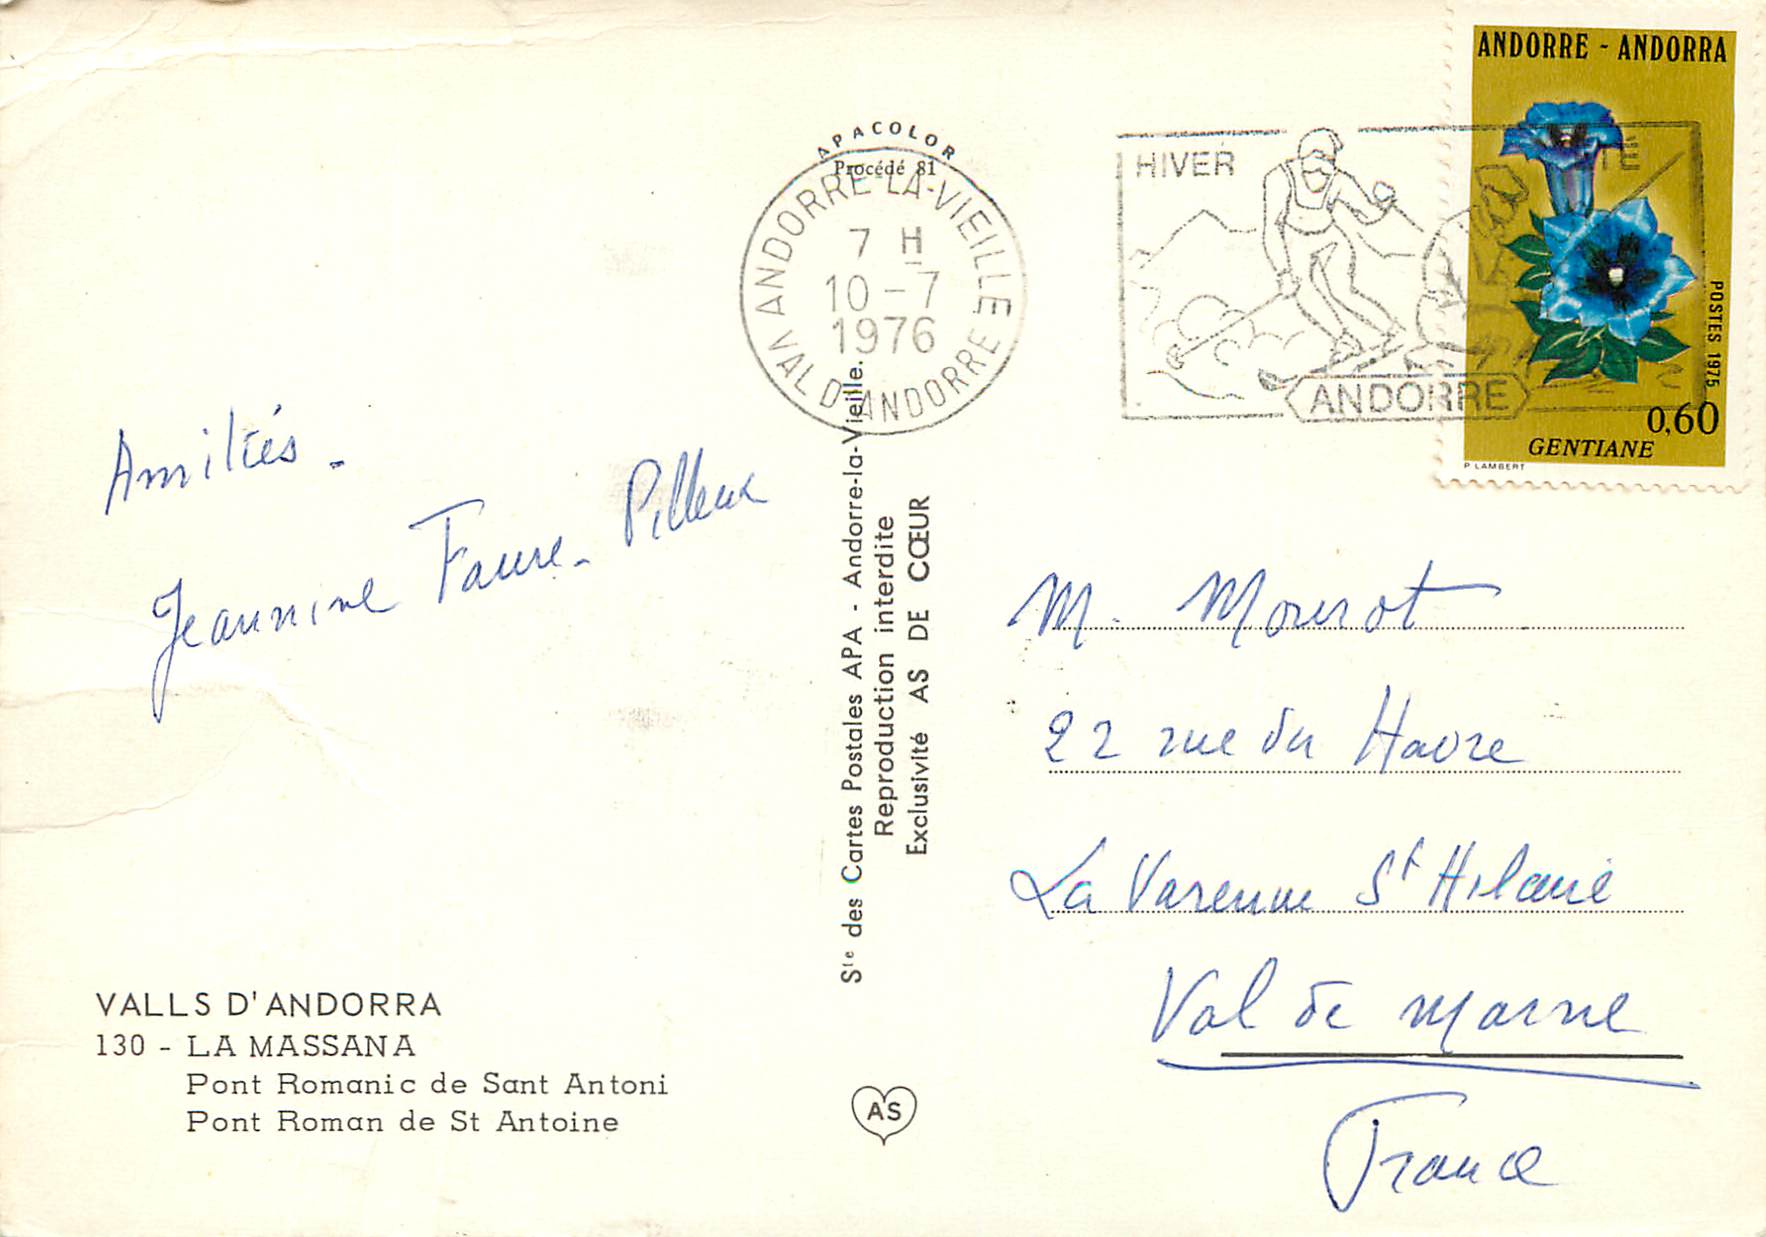 ANDORRE - ANDORRA
POSTES 1975
0,60
GENTIANE
P LAMBERT
APACOLOR
Procédé 81
ANDORRE-LA-VIEILLE
7 H
10-7
1976
VAL D'ANDORRE
HIVER
TÉ
ANDORRE
Amitiés -
Jeannine Faure - Pilleux
Sté des Cartes Postales APA - Andorre-la-Vieille.
Reproduction interdite
Exclusivité AS DE CŒUR
M. Mourot
22 rue du Havre
La Varenne St Hilaire
Val de Marne
France
VALLS D'ANDORRA
130 - LA MASSANA
Pont Romanic de Sant Antoni
Pont Roman de St Antoine
AS